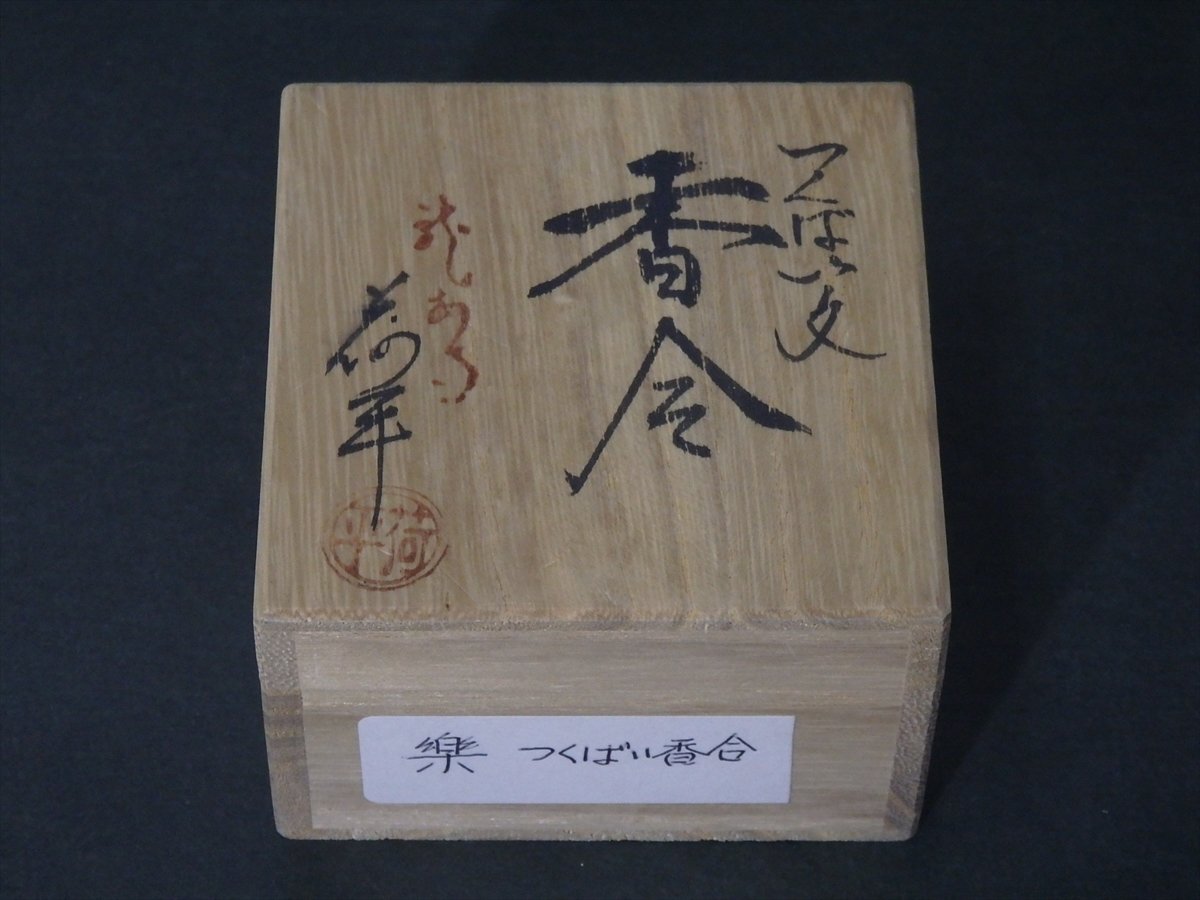 つくばい文
香合
荷平
荷平
樂 つくばい香合